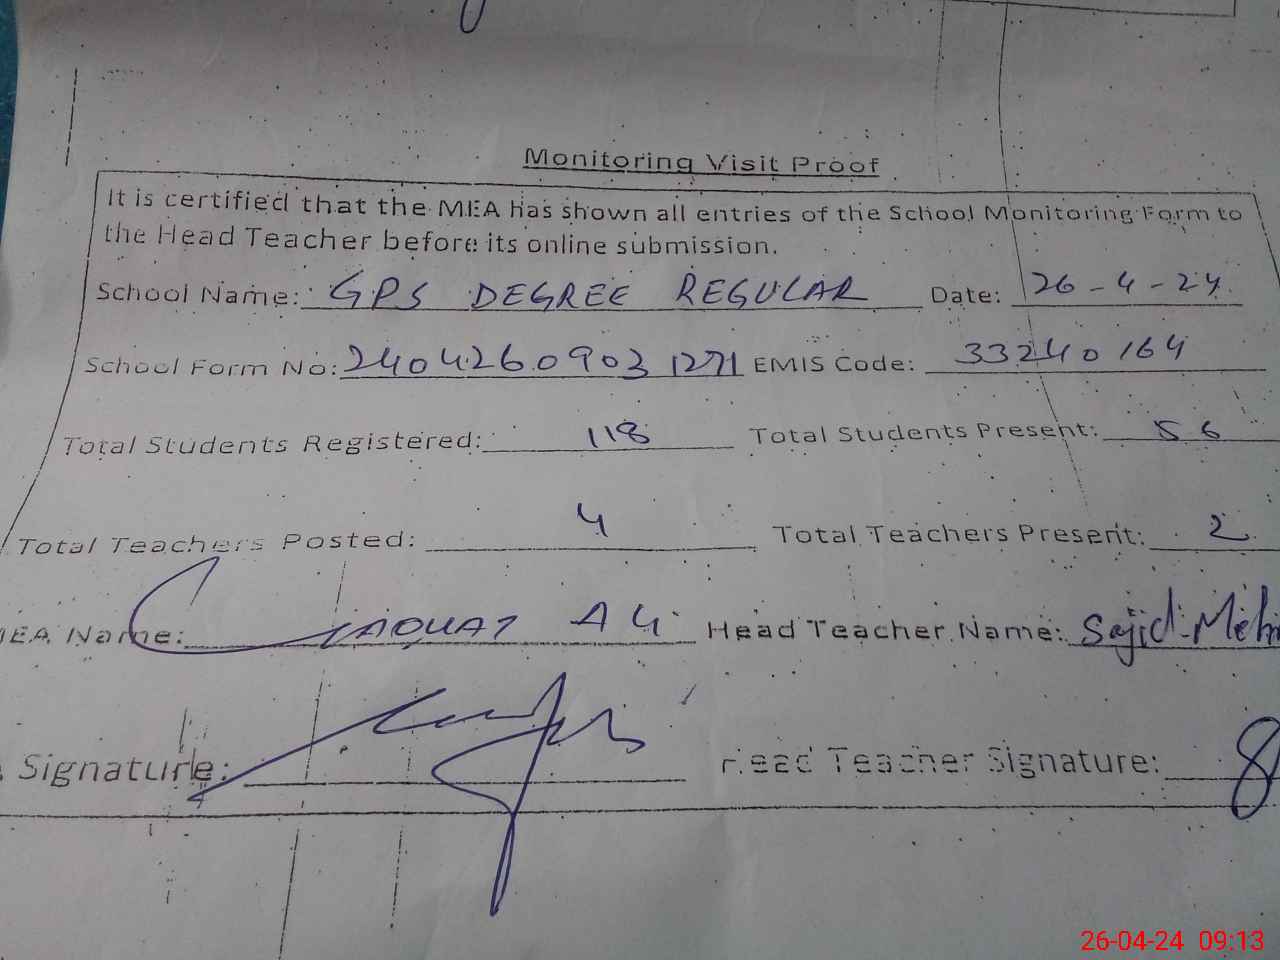 Monitoring Visit Proof
It is certified that the MEA has shown all entries of the School Monitoring Form to
the Head Teacher before its online submission.
School Name: GPS DEGREE REGULAR Date: 26-4-24
School Form No: 24042609031271 EMIS Code: 33240164
Total Students Registered: 118 Total Students Present: 56
Total Teachers Posted: 4 Total Teachers Present: 2
MEA Name: LIAQUAT ALI Head Teacher Name: Sajid Meh
Signature: Head Teacher Signature:
26-04-24 09:13